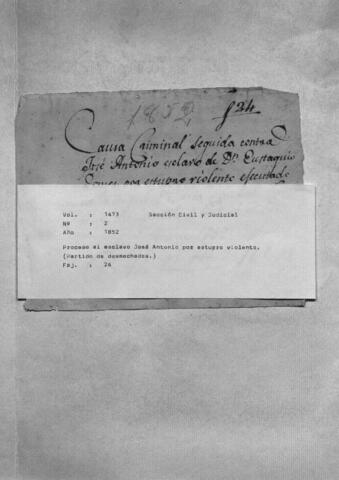 1852 f 24
Causa Criminal seguida contra
José Antonio esclavo de Dn. Eustaquio
por estupro violento ejecutado
Vol. : 1473 Sección Civil y Judicial
Nº : 2
Año : 1852
Proceso al esclavo José Antonio por estupro violento.
(Partido de desmochados.)
Foj. : 24